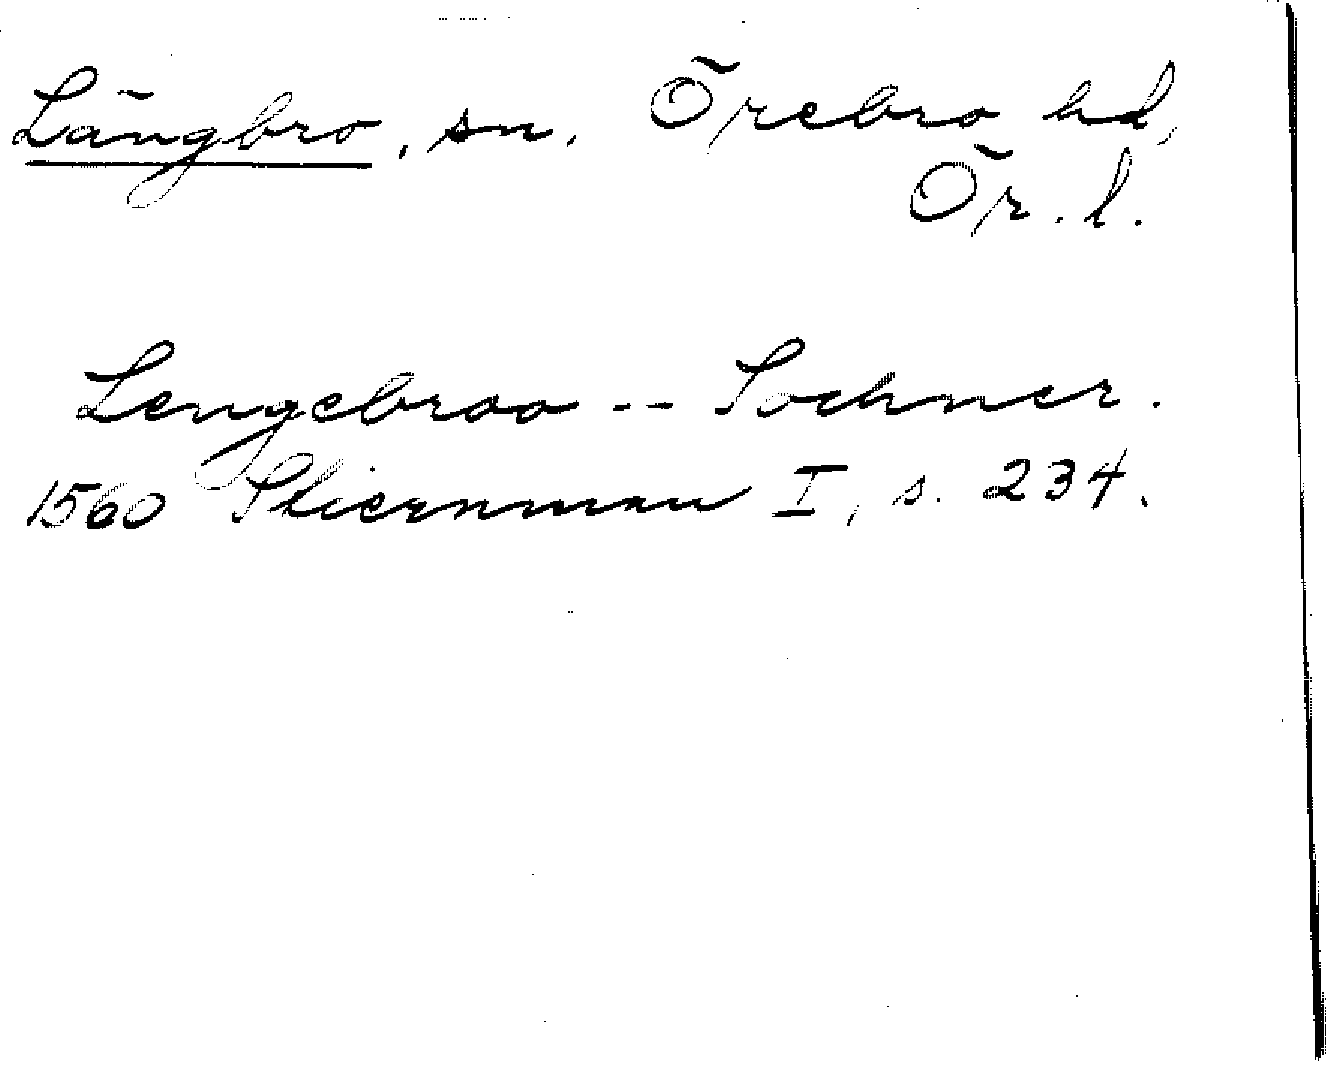 Längbro, sn. Örebro hd,
Ör. l.
Lengebroo -- Sochner.
1560 Stiernman I, s. 234.